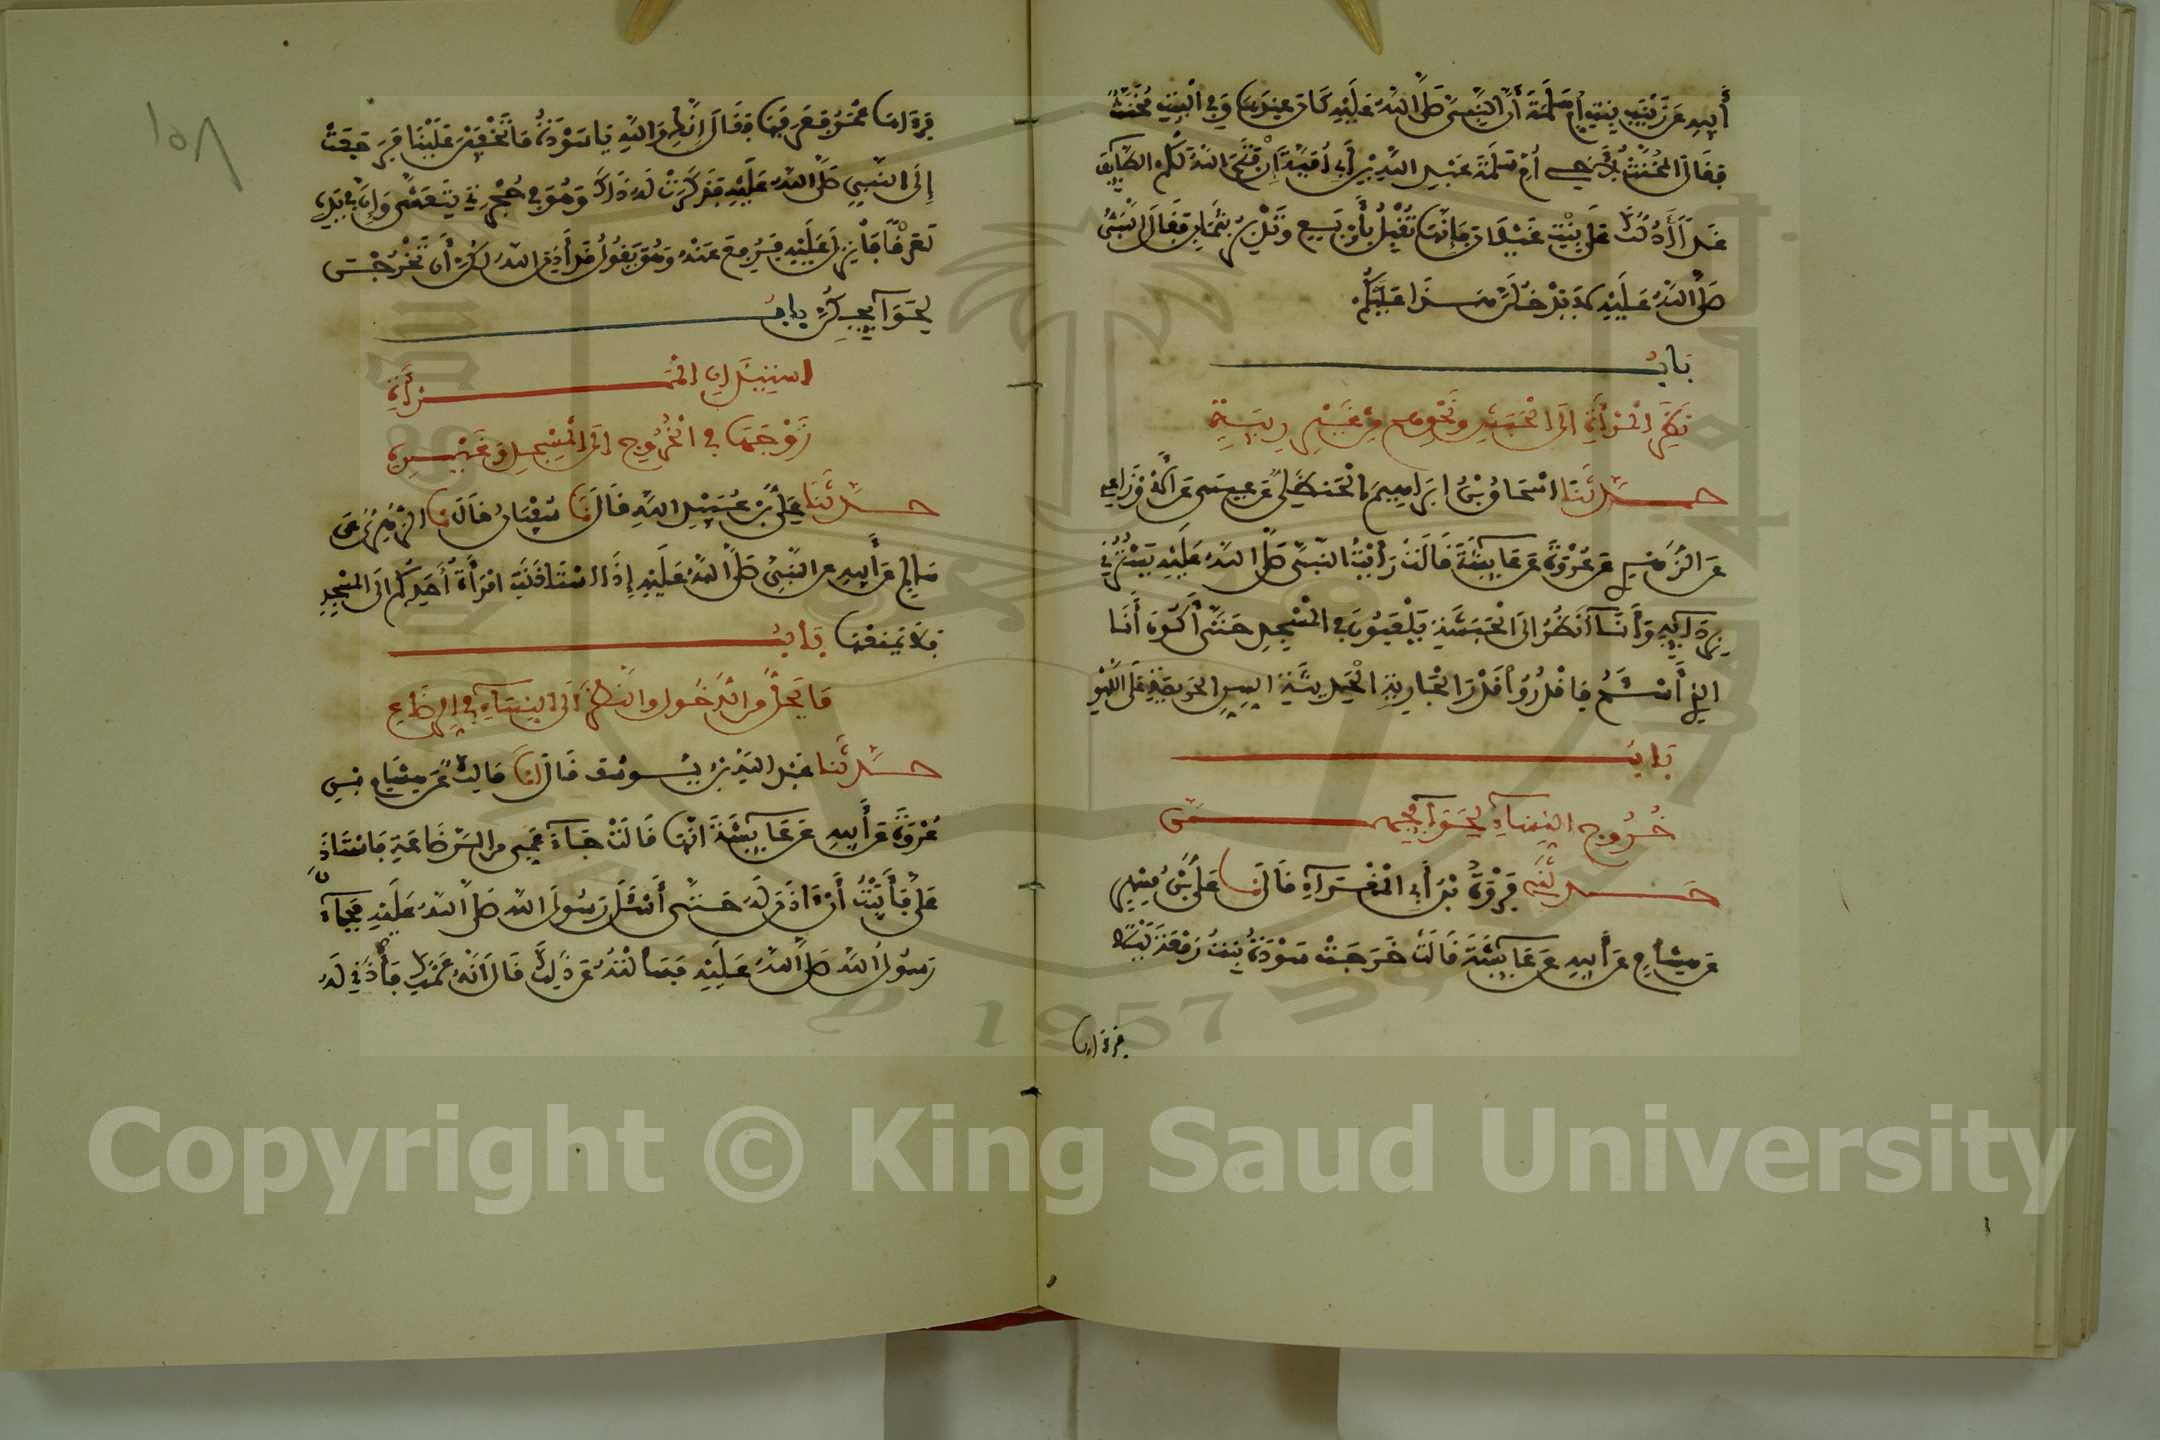 أَبِيهِ عَن زَيْنَبَ بِنْتِ أُمِّ سَلَمَةَ أَنَّ النَّبِيَّ صَلَّى اللَّهُ عَلَيْهِ كَانَ عِنْدَهَا وَفِي الْبَيْتِ مُخَنَّثٌ
فَقَالَ الْمُخَنَّثُ لِأَخِي أُمِّ سَلَمَةَ عَبْدِ اللَّهِ بْنِ أَبِي أُمَيَّةَ إِنْ فَتَحَ اللَّهُ لَكُمُ الطَّائِفَ
غَدًا أَدُلُّكَ عَلَى بِنْتِ غَيْلَانَ فَإِنَّهَا تُقْبِلُ بِأَرْبَعٍ وَتُدْبِرُ بِثَمَانٍ فَقَالَ النَّبِيُّ
صَلَّى اللَّهُ عَلَيْهِ لَا يَدْخُلَنَّ هَذَا عَلَيْكُمْ
بَابُ
نَظَرِ الْمَرْأَةِ إِلَى الْحَبَشِ وَنَحْوِهِمْ مِنْ غَيْرِ رِيبَةٍ
حَدَّثَنَا إِسْحَاقُ بْنُ إِبْرَاهِيمَ الْحَنْظَلِيُّ عَن عِيسَى عَن الْأَوْزَاعِي
عَن الزُّهْرِي عَن عُرْوَةَ عَن عَائِشَةَ قَالَتْ رَأَيْتُ النَّبِيَّ صَلَّى اللَّهُ عَلَيْهِ يَسْتُرُنِي
بِرِدَائِهِ وَأَنَا أَنْظُرُ إِلَى الْحَبَشَةِ يَلْعَبُونَ فِي الْمَسْجِدِ حَتَّى أَكُونَ أَنَا
الَّتِي أَسْأَمُ فَاقْدُرُوا قَدْرَ الْجَارِيَةِ الْحَدِيثَةِ السِّنِّ الْحَرِيصَةِ عَلَى اللَّهْوِ
بَابُ
خُرُوجِ النِّسَاءِ لِحَوَائِجِهِنَّ
حَدَّثَنِي فَرْوَةُ بْنُ أَبِي الْمَغْرَاءِ قَالَ نَا عَلِيُّ بْنُ مُسْهِرٍ
عَن هِشَامٍ عَن أَبِيهِ عَن عَائِشَةَ قَالَتْ خَرَجَتْ سَوْدَةُ بِنْتُ زَمْعَةَ لَيْلًا
فَرَءَاهَا
فَرَءَاهَا عُمَرُ فَعَرَفَهَا فَقَالَ إِنَّكِ وَاللَّهِ يَا سَوْدَةُ مَا تَخْفَيْنَ عَلَيْنَا فَرَجَعَتْ
إِلَى النَّبِيِّ صَلَّى اللَّهُ عَلَيْهِ فَذَكَرَتْ لَهُ ذَلِكَ وَهُوَ فِي حُجْرَتِي يَتَعَشَّى وَإِنَّ فِي يَدِهِ
لَعَرْقًا فَأُنْزِلَ عَلَيْهِ فَرُفِعَ عَنْهُ وَهُوَ يَقُولُ قَدْ أَذِنَ اللَّهُ لَكُنَّ أَن تَخْرُجْنَ
لِحَوَائِجِكُنَّ بَابُ
اسْتِئْذَانِ الْمَرْأَةِ
زَوْجَهَا فِي الْخُرُوجِ إِلَى الْمَسْجِدِ وَغَيْرِهِ
حَدَّثَنَا عَلِيُّ بْنُ عَبْدِ اللَّهِ قَالَ نَا سُفْيَانُ قَالَ نَا الزُّهْرِيُّ عَن
سَالِمٍ عَن أَبِيهِ عَن النَّبِيِّ صَلَّى اللَّهُ عَلَيْهِ إِذَا اسْتَأْذَنَتِ امْرَأَةُ أَحَدِكُمْ إِلَى الْمَسْجِدِ
فَلَا يَمْنَعْهَا بَابُ
مَا يَحِلُّ مِنَ الدُّخُولِ وَالنَّظَرِ إِلَى النِّسَاءِ فِي الرَّضَاعِ
حَدَّثَنَا عَبْدُ اللَّهِ بْنُ يُوسُفَ قَالَ نَا مَالِكٌ عَن هِشَامِ بْنِ
عُرْوَةَ عَن أَبِيهِ عَن عَائِشَةَ أَنَّهَا قَالَتْ جَاءَ عَمِّي مِنَ الرَّضَاعَةِ فَاسْتَأْذَنَ
عَلَيَّ فَأَبَيْتُ أَنْ ءَاذَنَ لَهُ حَتَّى أَسْأَلَ رَسُولَ اللَّهِ صَلَّى اللَّهُ عَلَيْهِ فَجَاءَ
رَسُولُ اللَّهِ صَلَّى اللَّهُ عَلَيْهِ فَسَأَلْتُهُ عَن ذَلِكَ فَقَالَ إِنَّهُ عَمُّكِ فَأْذَنِي لَهُ
١٥٨
1957
Copyright © King Saud University